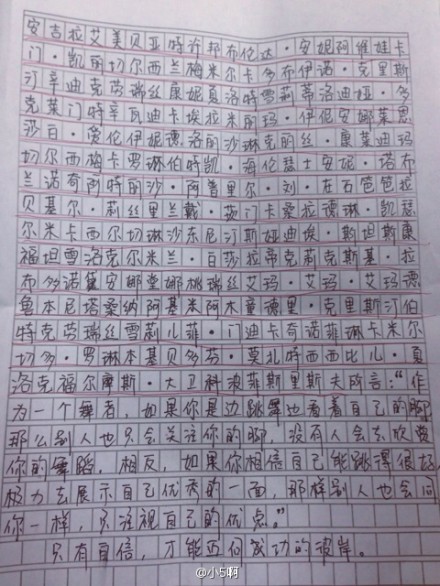 安吉拉艾美贝亚特许邦布伦达·安妮阿维娃卡
门·凯丽切尔西兰梅米尔卡多布伊诺·克里斯
汀辛迪克劳瑞丝康妮夏洛特雪莉蒂洛迪娅·多
克莱门特辛瓦迪卡埃拉米丽玛·伊妮安娜莱恩
莎白·爱伦伊妮德洛丽莎琳克丽丝·康莱迪玛
切尔西梅卡罗琳伯特凯·海伦瑟士安妮·塔布
兰诺奇阿特丽沙·阿普里尔·刘·在石笆笆拉
贝基尔·莉丝里兰戴·茨门卡桑拉德琳·凯瑟
尔米卡西尔切琳沙东尼汀斯娅迪埃·斯坦斯康
福坦雪洛克尔米兰·百莎拉帝克莉克斯基·拉
布多诺黛安娜堂娜桃瑞丝艾玛·艾玛·艾玛德
鲁本尼塔桑纳阿基米阿木童德里·克里斯汀伯
特克劳瑞丝雪莉儿菲·门迪卡奇诺菲琳卡米尔
切多·罗琳本基贝多芬·莫北特西西比儿·夏
洛克福尔摩斯·大卫科波菲斯里斯夫名言：“作
为一个舞者，如果你是边跳舞边看着自己的脚
那么别人也只会关注你的脚，没有人会去欣赏
你的舞蹈，相反，如果你相信自己能跳得很好
极力去展示自己优秀的一面，那样别人也会同
你一样，只注视自己的优点。”
只有自信，才能迈向成功的彼岸。
@小5啊